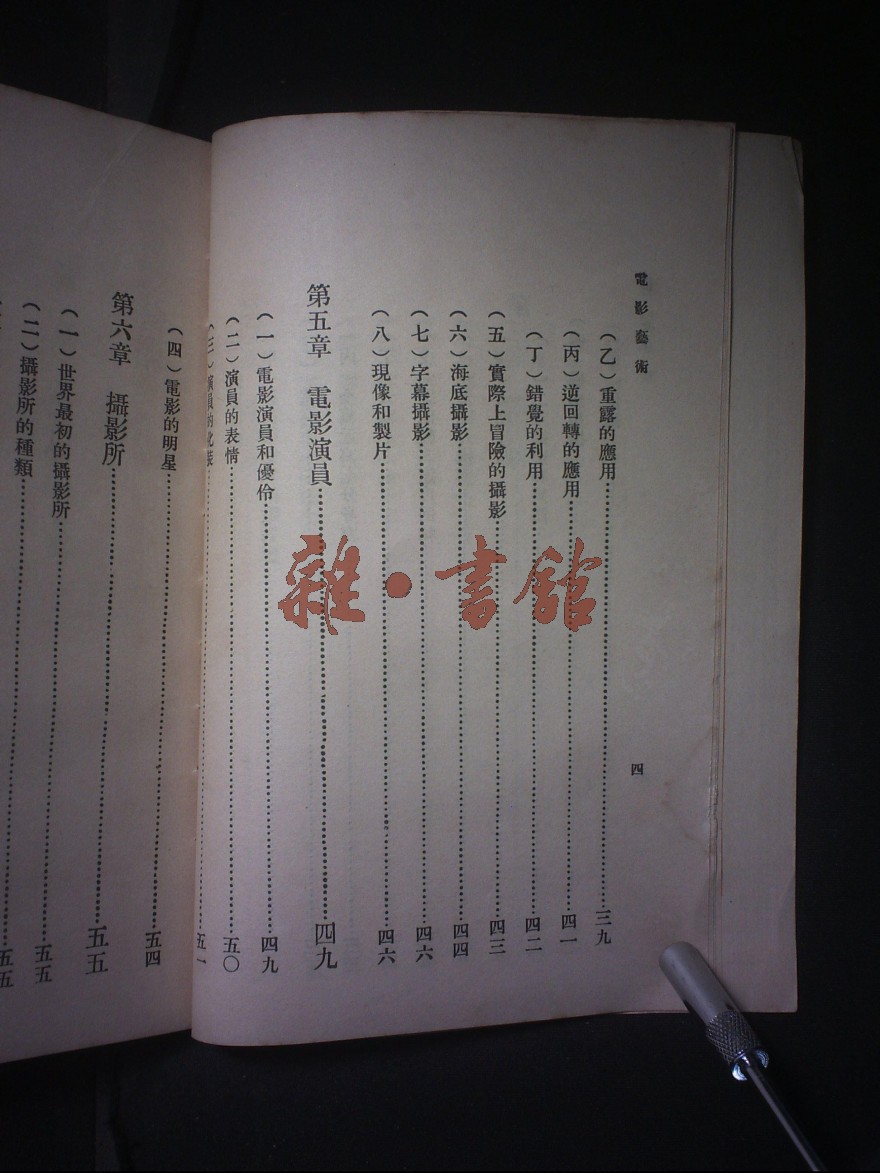 電影藝術
四
（乙）重露的應用……三九
（丙）逆回轉的應用……四一
（丁）錯覺的利用……四二
（五）實際上冒險的攝影……四三
（六）海底攝影……四四
（七）字幕攝影……四六
（八）現像和製片……四六
第五章　電影演員……四九
（一）電影演員和優伶……四九
（二）演員的表情……五〇
（三）演員的化裝……五一
（四）電影的明星……五四
第六章　攝影所……五五
（一）世界最初的攝影所……五五
（二）攝影所的種類……五五
雜•書館